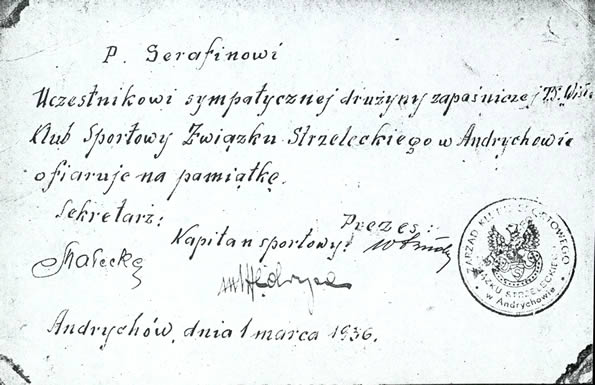 P. Serafinowi
Uczestnikowi sympatycznej drużyny zapaśniczej T.S. Wisła
Klub Sportowy Związku Strzeleckiego w Andrychowie
ofiaruje na pamiątkę.
Sekretarz:
Prezes:
Kapitan sportowy:
Andrychów, dnia 1 marca 1936.
ZARZĄD KLUBU SPORTOWEGO
ZWIĄZKU STRZELECKIEGO
w Andrychowie